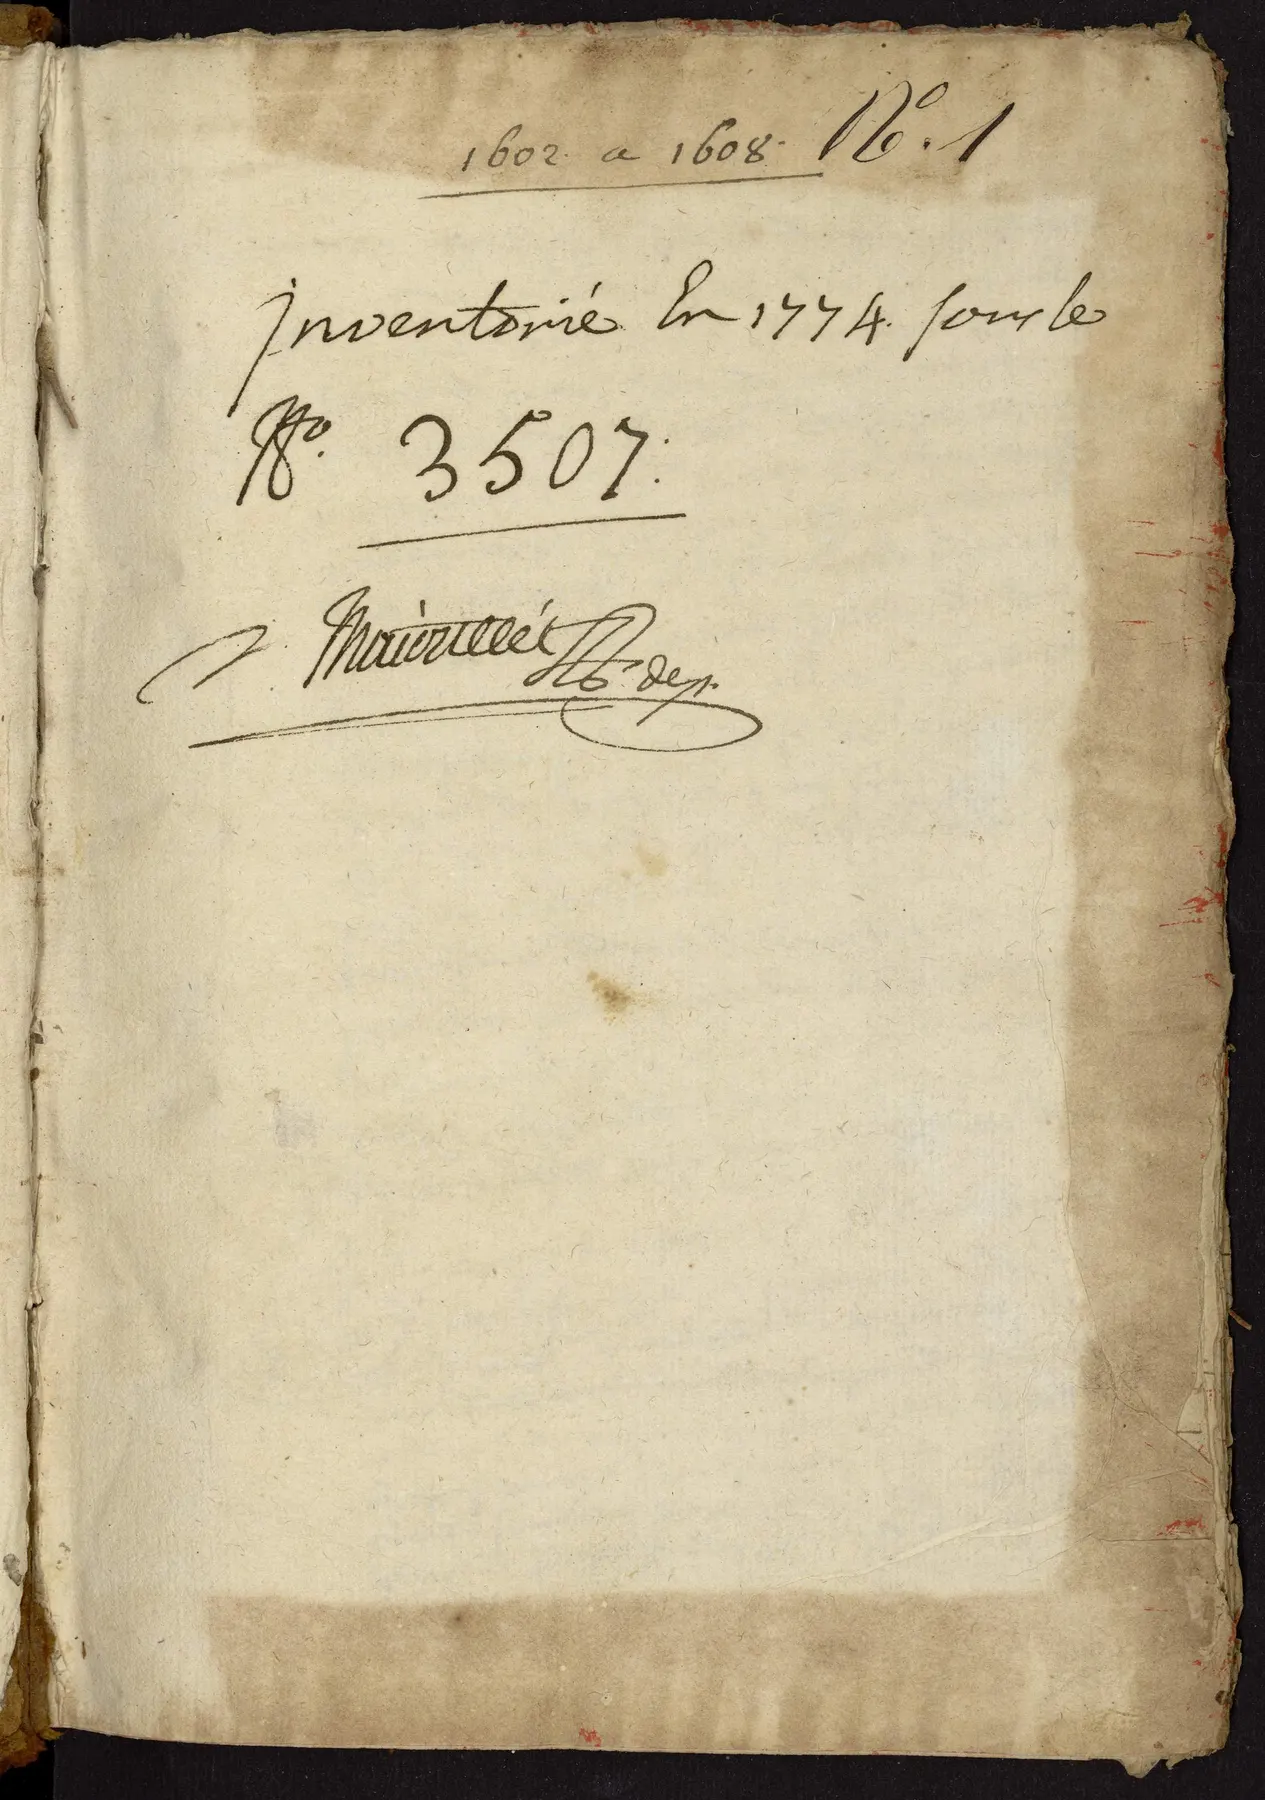 1602 a 1608. Nº. 1
Inventorié En 1774. sous le
Nº. 3507.